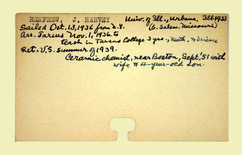 RENFREW, J. HARVEY Univ. of Ill., Urbana, Ill 1933
(b. Salem, Missouri)
Sailed Oct. 13, 1936 from N.Y.
Arr. Tarsus Nov. 1, 1936 to
teach in Tarsus College 3 yrs., Math. & Science
Ret. U.S. summer of 1939.
Ceramic chemist, near Boston, Sept. '51 with
wife & 4-year-old son.